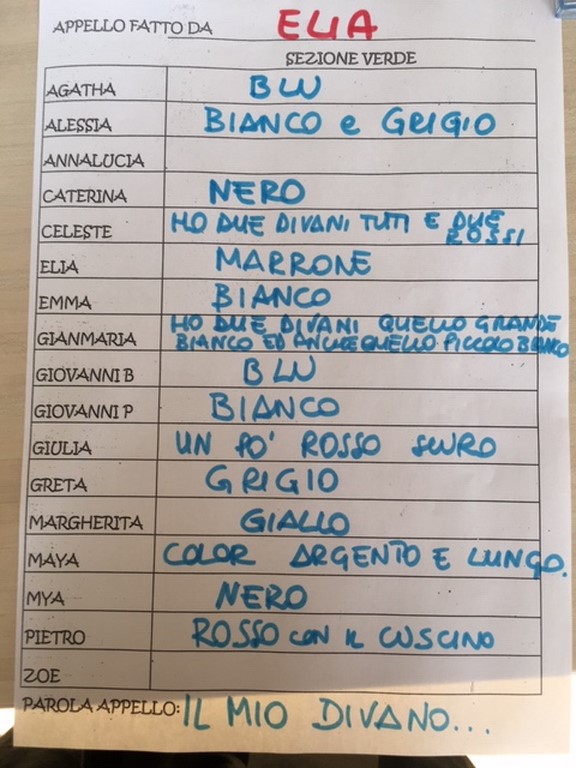 APPELLO FATTO DA ELIA
SEZIONE VERDE
AGATHA BLU
ALESSIA BIANCO e GRIGIO
ANNALUCIA
CATERINA NERO
CELESTE HO DUE DIVANI TUTI E DUE
ROSSI
ELIA MARRONE
EMMA BIANCO
GIANMARIA HO DUE DIVANI QUELLO GRANDE
BIANCO ED ANCHE QUELLO PICCOLO BIANCO
GIOVANNI B BLU
GIOVANNI P BIANCO
GIULIA UN PO' ROSSO SCURO
GRETA GRIGIO
MARGHERITA GIALLO
MAYA COLOR ARGENTO E LUNGO.
MYA NERO
PIETRO ROSSO CON IL CUSCINO
ZOE
PAROLA APPELLO: IL MIO DIVANO...